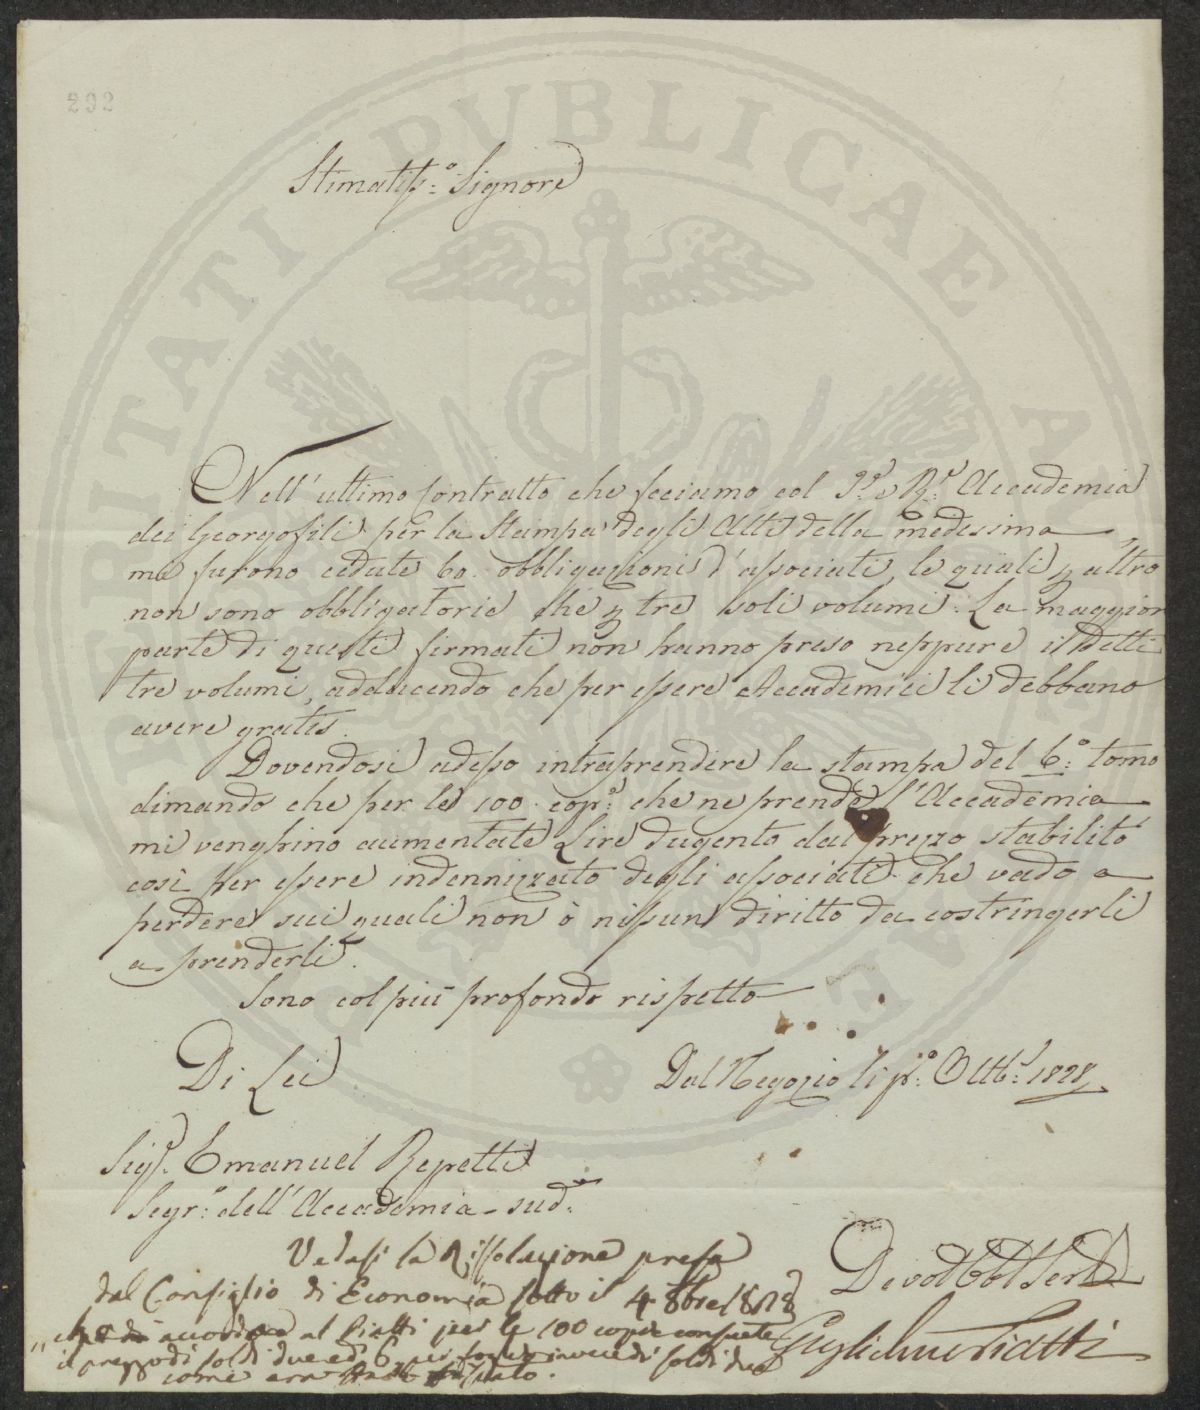 292
PROSPERITATI PUBLICAE AUGENDAE
Stimatiss.º Signore
Nell'ultimo Contratto che feciamo col I.e R.e Accademia
dei Georgofili per la Stampa degli Atti della medesima,
me furono cedute 60. obbligazioni d'associati, le quali p altro
non sono obbligatorie che p tre soli volumi. La maggior
parte di queste firmate non hanno preso neppure i detti
tre volumi, adducendo che per essere Accademici li debbano
avere gratis.
Dovendosi adesso intraprendere la stampa del 6.º tomo
dimando che per le 100. cop.e che ne prende l'Accademia
mi venghino aumentate Lire dugento dal prezzo stabilito
così per essere indennizzato degli associati che vado a
perdere sui quali non ò nissun diritto da costringerli
a prenderli.
Sono col più profondo rispetto
Di Lei
Dal Negozio li p.º Ottb.e 1828
Sig.r Emanuel Repetti
Segr.º dell'Accademia sud.a
Devot Obb Serv
Guglielmo Piatti
Vedasi la Rissoluzione presa
dal Consiglio di Economia sotto il 4 8bre 1828
accorda al Piatti per le 100 copie consuete
il prezzo di soldi due ed 6 per foglio invece di soldi due
come era stato.